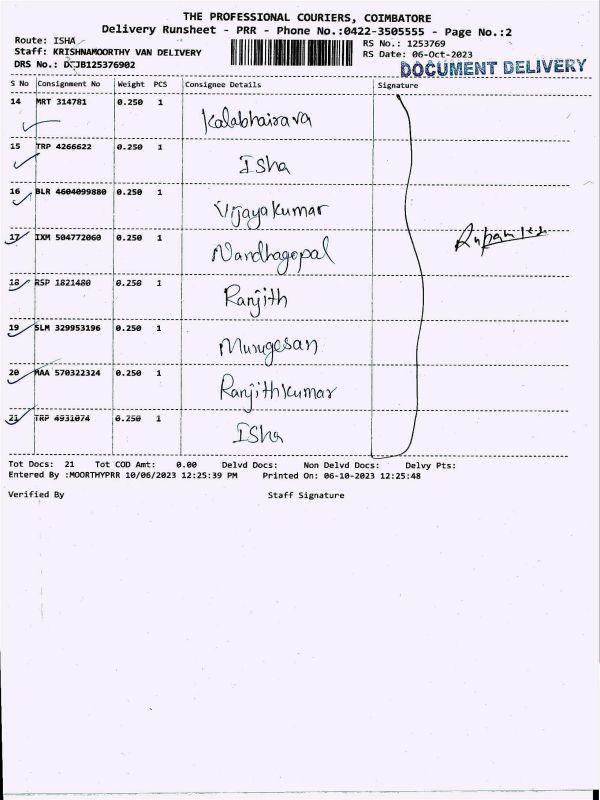 THE PROFESSIONAL COURIERS, COIMBATORE
Delivery Runsheet - PRR - Phone No.:0422-3505555 - Page No.:2
Route: ISHA
RS No.: 1253769
Staff: KRISHNAMOORTHY VAN DELIVERY
RS Date: 06-Oct-2023
DRS No.: DCJB125376902
DOCUMENT DELIVERY
S No Consignment No Weight PCS Consignee Details Signature
14 MRT 314781 0.250 1
Kalabhairava
15 TRP 4266622 0.250 1
Isha
16 BLR 4604099880 0.250 1
Vijayakumar
17 IXM 504772060 0.250 1
Nandhagopal
18 RSP 1821480 0.250 1
Ranjith
19 SLM 329953196 0.250 1
Murugesan
20 MAA 570322324 0.250 1
Ranjithkumar
21 TRP 4931074 0.250 1
Isha
Tot Docs: 21 Tot COD Amt: 0.00 Delvd Docs: Non Delvd Docs: Delvy Pts:
Entered By :MOORTHYPRR 10/06/2023 12:25:39 PM Printed On: 06-10-2023 12:25:48
Verified By Staff Signature